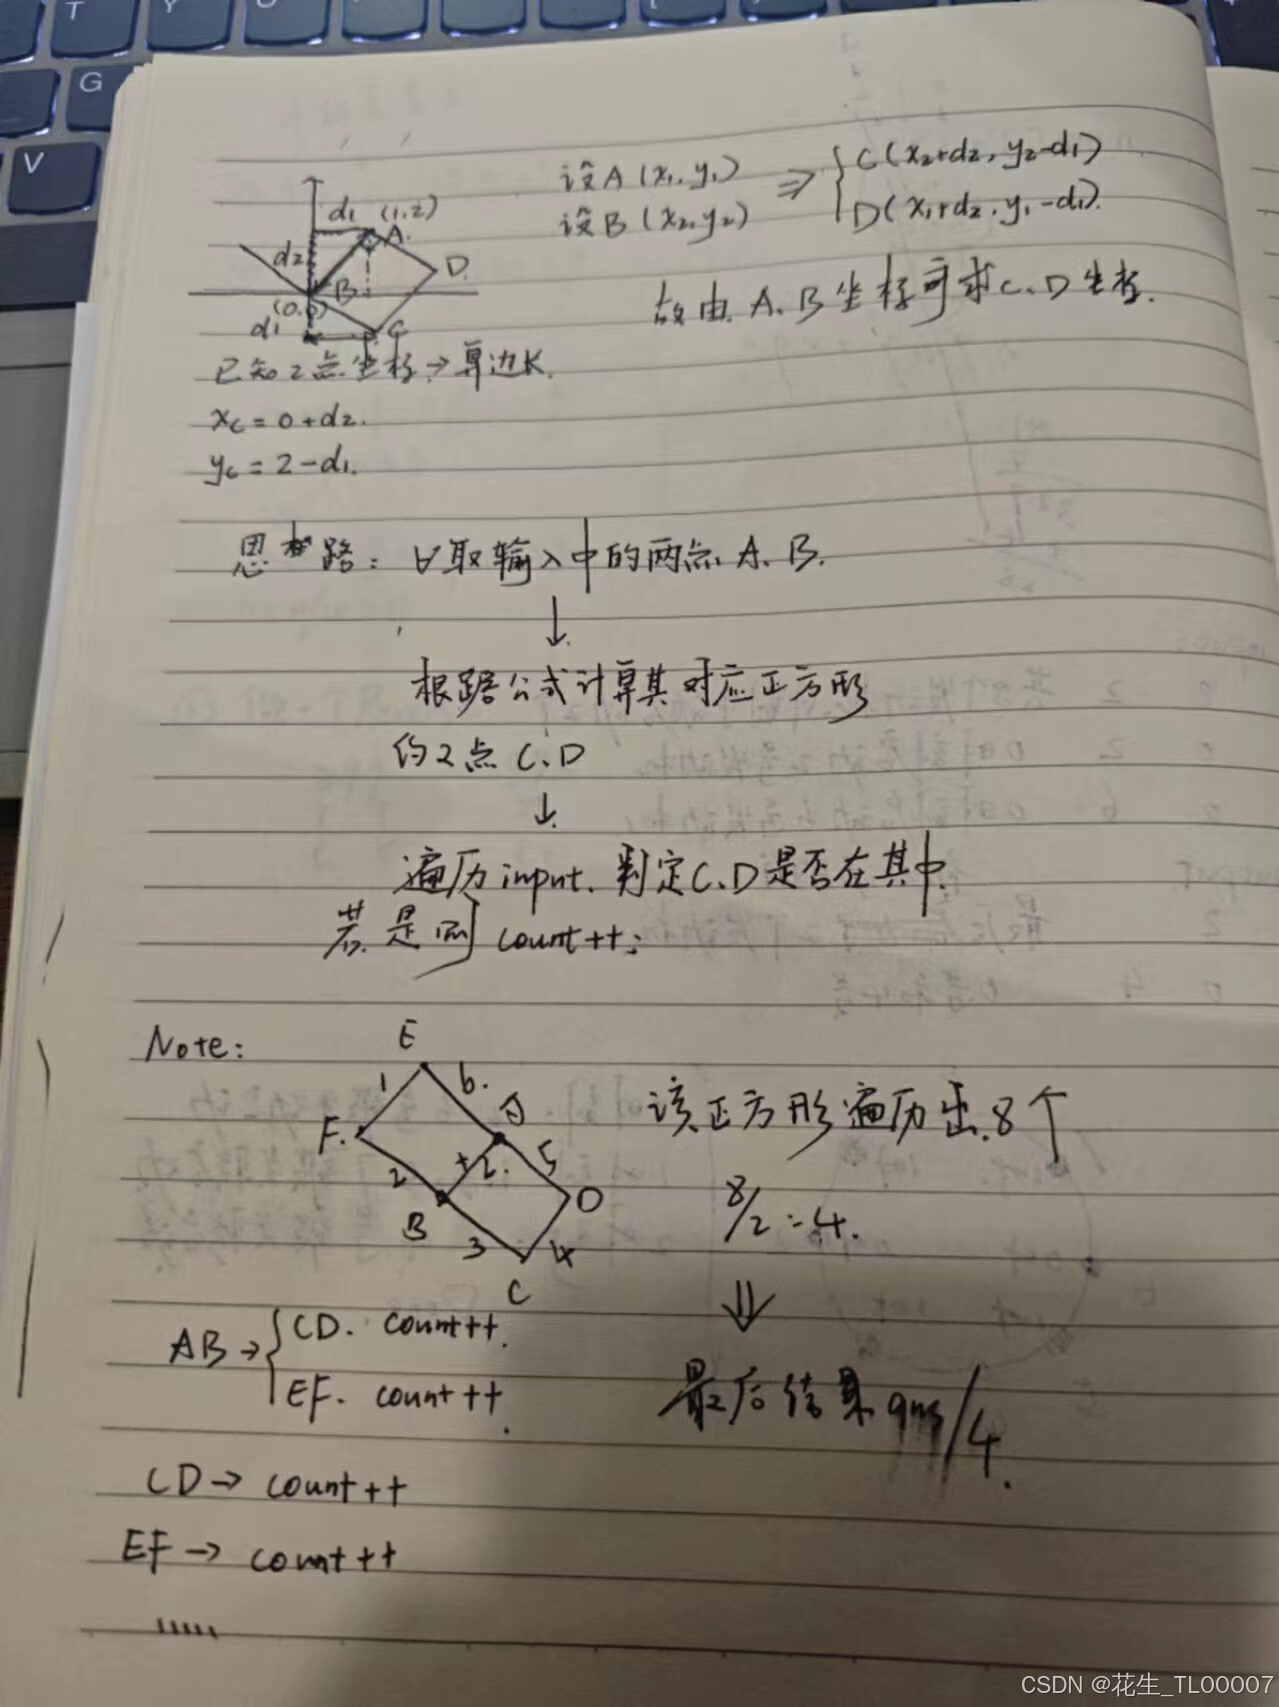 T
G
V
设A(x₁,y₁)
设B(x₂,y₂)
⇒ { C(x₂+d₂, y₂-d₁)
D(x₁+d₂, y₁-d₁)
故由A、B坐标可求C、D坐标.
d₁ (1,2)
A
d₂
D
B
(0,0)
d₁ C
已知2点坐标→算边K.
x_C = 0+d₂.
y_C = 2-d₁.
思路: ∀取输入中的两点A、B.
↓
根据公式计算其对应正方形
的2点C、D
↓
遍历input,判定C、D是否在其中.
若是则count++;
Note:
E
1 6.
F.
2 5
B D
3 4
C
该正方形遍历出8个
8/2=4.
⇓
最后结果 ans/4.
AB→{ CD. count++.
EF. count++.
CD→ count++
EF→ count++
CSDN @花生_TL00007